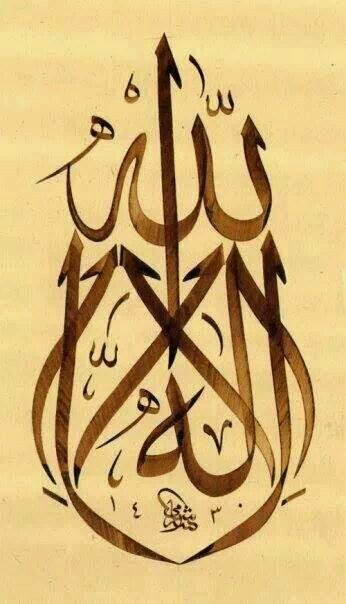 لا إله إلا الله
١٤٣٠